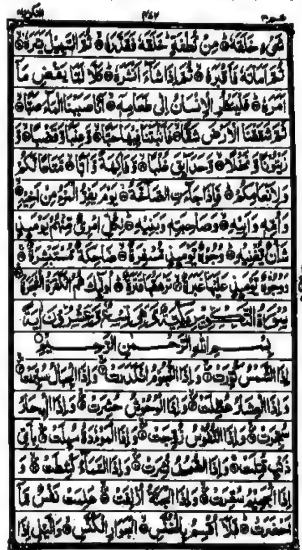 شَيْءٍ خَلَقَهُ ۝ مِنْ نُطْفَةٍ خَلَقَهُ فَقَدَّرَهُ ۝ ثُمَّ السَّبِيلَ يَسَّرَهُ ۝
ثُمَّ أَمَاتَهُ فَأَقْبَرَهُ ۝ ثُمَّ إِذَا شَاءَ أَنْشَرَهُ ۝ كَلَّا لَمَّا يَقْضِ مَا
أَمَرَهُ ۝ فَلْيَنْظُرِ الْإِنْسَانُ إِلَى طَعَامِهِ ۝ أَنَّا صَبَبْنَا الْمَاءَ صَبًّا ۝
ثُمَّ شَقَقْنَا الْأَرْضَ شَقًّا ۝ فَأَنْبَتْنَا فِيهَا حَبًّا ۝ وَعِنَبًا وَقَضْبًا ۝ وَ
زَيْتُونًا وَنَخْلًا ۝ وَحَدَائِقَ غُلْبًا ۝ وَفَاكِهَةً وَأَبًّا ۝ مَتَاعًا لَكُمْ
وَلِأَنْعَامِكُمْ ۝ فَإِذَا جَاءَتِ الصَّاخَّةُ ۝ يَوْمَ يَفِرُّ الْمَرْءُ مِنْ أَخِيهِ ۝
وَأُمِّهِ وَأَبِيهِ ۝ وَصَاحِبَتِهِ وَبَنِيهِ ۝ لِكُلِّ امْرِئٍ مِنْهُمْ يَوْمَئِذٍ
شَأْنٌ يُغْنِيهِ ۝ وُجُوهٌ يَوْمَئِذٍ مُسْفِرَةٌ ۝ ضَاحِكَةٌ مُسْتَبْشِرَةٌ ۝
وَوُجُوهٌ يَوْمَئِذٍ عَلَيْهَا غَبَرَةٌ ۝ تَرْهَقُهَا قَتَرَةٌ ۝ أُولَئِكَ هُمُ الْكَفَرَةُ الْفَجَرَةُ ۝
سُورَةُ التَّكْوِيرِ مَكِّيَّةٌ وَهِيَ تِسْعٌ وَعِشْرُونَ آيَةً
بِسْمِ اللَّهِ الرَّحْمَنِ الرَّحِيمِ
إِذَا الشَّمْسُ كُوِّرَتْ ۝ وَإِذَا النُّجُومُ انْكَدَرَتْ ۝ وَإِذَا الْجِبَالُ سُيِّرَتْ ۝
وَإِذَا الْعِشَارُ عُطِّلَتْ ۝ وَإِذَا الْوُحُوشُ حُشِرَتْ ۝ وَإِذَا الْبِحَارُ
سُجِّرَتْ ۝ وَإِذَا النُّفُوسُ زُوِّجَتْ ۝ وَإِذَا الْمَوْءُودَةُ سُئِلَتْ ۝ بِأَيِّ
ذَنْبٍ قُتِلَتْ ۝ وَإِذَا الصُّحُفُ نُشِرَتْ ۝ وَإِذَا السَّمَاءُ كُشِطَتْ ۝ وَ
إِذَا الْجَحِيمُ سُعِّرَتْ ۝ وَإِذَا الْجَنَّةُ أُزْلِفَتْ ۝ عَلِمَتْ نَفْسٌ مَا
أَحْضَرَتْ ۝ فَلَا أُقْسِمُ بِالْخُنَّسِ ۝ الْجَوَارِ الْكُنَّسِ ۝ وَاللَّيْلِ إِذَا